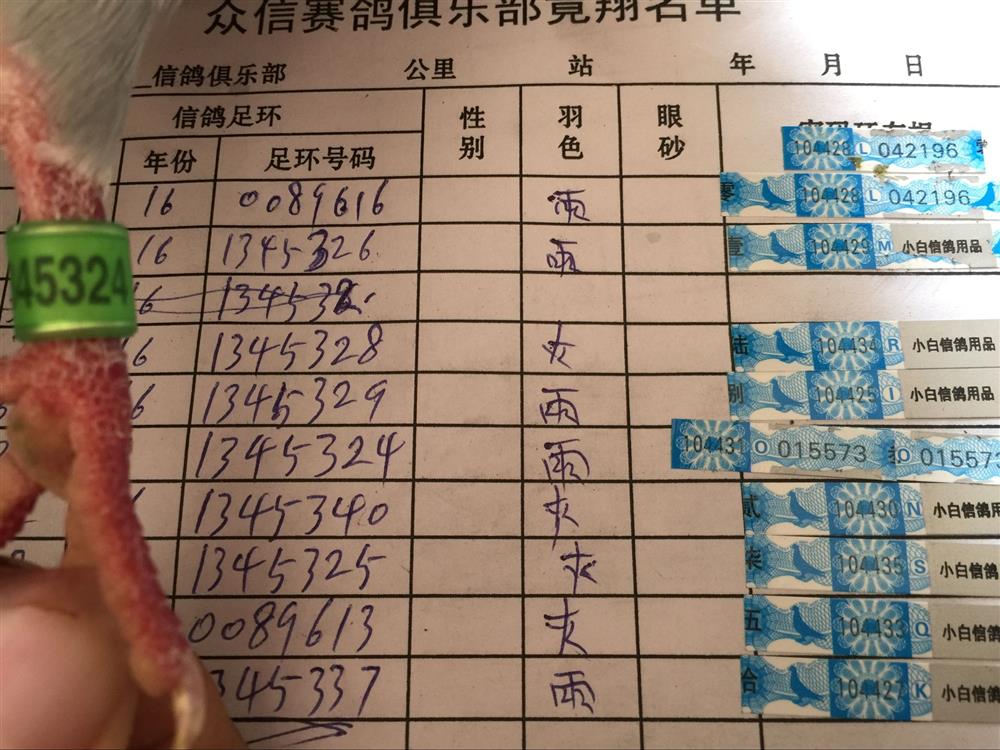 众信赛鸽俱乐部竞翔名单
信鸽俱乐部 公里 站 年 月 日
信鸽足环 性别 羽色 眼砂
年份 足环号码
104428 L 042196
16 0089616 雨 零 104428 L 042196
16 1345326 雨 壹 104429 M 小白信鸽用品
45324
6 134532
6 1345328 灰 陆 104434 R 小白信鸽用品
6 1345329 雨 别 104425 I 小白信鸽用品
1345324 雨 104431 O 015573 O 015573
1345340 灰 贰 104430 N 小白信鸽用
1345325 灰 柒 104435 S 小白信鸽
0089613 灰 五 104433 Q 小白信鸽
345337 雨 合 104427 K 小白信鸽